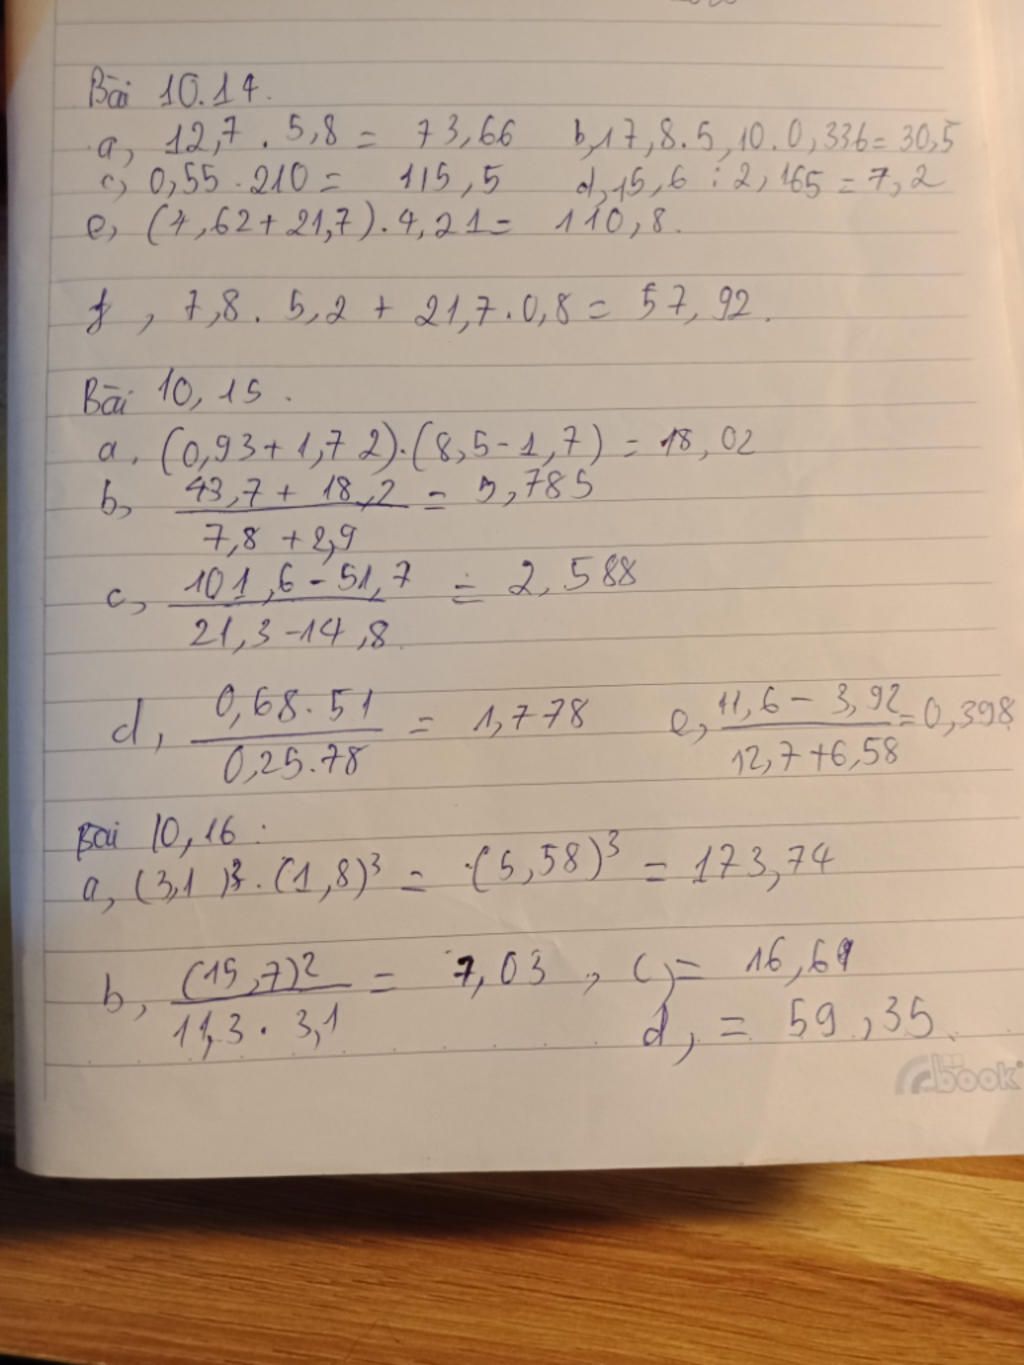 Bài 10.14.
a, 12,7 . 5,8 = 73,66 b, 17,8.5,10.0,336=30,5
c, 0,55.210 = 115,5 d, 15,6 : 2,165 = 7,2
e, (4,62+21,7).4,21= 110,8.
f, 7,8. 5,2 + 21,7.0,8 = 57,92.
Bài 10,15.
a, (0,93+1,72).(8,5-1,7) = 18,02
b, \frac{43,7 + 18,2}{7,8 + 2,9} = 5,785
c, \frac{101,6 - 51,7}{21,3 - 14,8} = 2,588
d, \frac{0,68.51}{0,25.78} = 1,778 e, \frac{11,6 - 3,92}{12,7+6,58} = 0,398
Bài 10,16:
a, (3,1)³.(1,8)³ = (5,58)³ = 173,74
b, \frac{(15,7)²}{11,3 . 3,1} = 7,03, c, = 16,61
d, = 59,35.
book